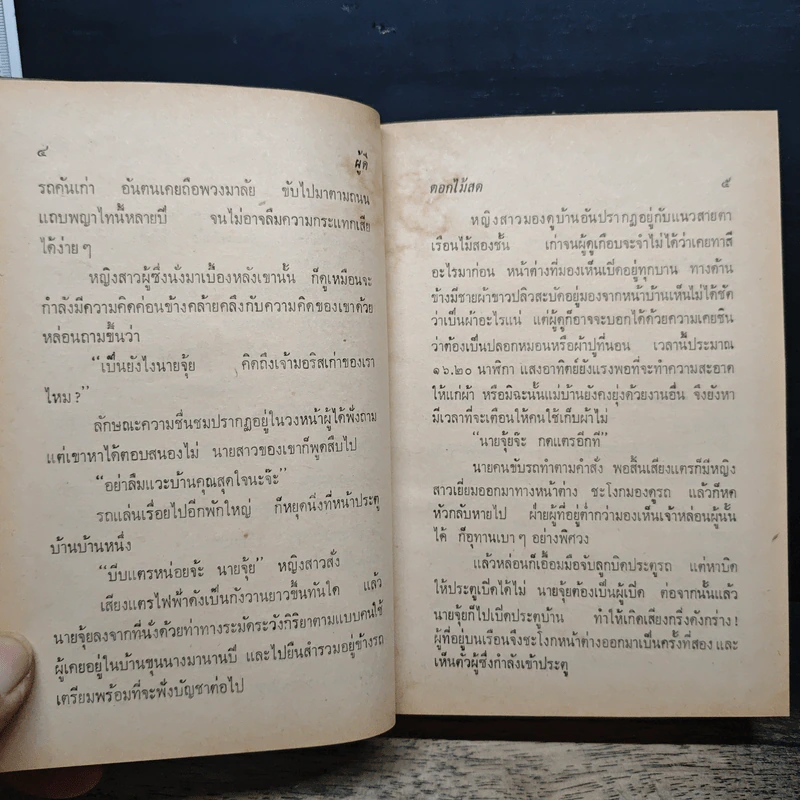 ๔
ผู้ดี
รถคันเก่า อันตนเคยถือพวงมาลัย ขับไปมาตามถนน
แถบพญาไทนี้หลายปี จนไม่อาจลืมความกระแทกเสีย
ได้ง่าย ๆ
หญิงสาวผู้ซึ่งนั่งมาเบื้องหลังเขานั้น ก็ดูเหมือนจะ
กำลังมีความคิดค่อนข้างคล้ายคลึงกับความคิดของเขาด้วย
หล่อนถามขึ้นว่า
“เป็นยังไงนายจุ้ย คิดถึงเจ้ามอริสเก่าของเรา
ไหม?”
ลักษณะความชื่นชมปรากฏอยู่ในวงหน้าผู้ได้ฟังถาม
แต่เขาหาได้ตอบสนองไม่ นายสาวของเขาก็พูดสืบไป
“อย่าลืมแวะบ้านคุณสุดใจนะจ๊ะ”
รถแล่นเรื่อยไปอีกพักใหญ่ ก็หยุดนิ่งที่หน้าประตู
บ้านบ้านหนึ่ง
“บีบแตรหน่อยจ้ะ นายจุ้ย” หญิงสาวสั่ง
เสียงแตรไฟฟ้าดังเป็นกังวานยาวขึ้นทันใด แล้ว
นายจุ้ยลงจากที่นั่งด้วยท่าทางระมัดระวังกิริยาตามแบบคนใช้
ผู้เคยอยู่ในบ้านขุนนางมานานปี และไปยืนสำรวมอยู่ข้างรถ
เตรียมพร้อมที่จะฟังบัญชาต่อไป
ดอกไม้สด
๕
หญิงสาวมองดูบ้านอันปรากฏอยู่กับแนวสายตา
เรือนไม้สองชั้น เก่าจนผู้ดูเกือบจะจำไม่ได้ว่าเคยทาสี
อะไรมาก่อน หน้าต่างที่มองเห็นเปิดอยู่ทุกบาน ทางด้าน
ข้างมีชายผ้าขาวปลิวสะบัดอยู่มองจากหน้าบ้านเห็นไม่ได้ชัด
ว่าเป็นผ้าอะไรแน่ แต่ผู้ดูก็อาจจะบอกได้ด้วยความเคยชิน
ว่าต้องเป็นปลอกหมอนหรือผ้าปูที่นอน เวลานี้ประมาณ
๑๖.๒๐ นาฬิกา แสงอาทิตย์ยังแรงพอที่จะทำความสะอาด
ให้แก่ผ้า หรือมิฉะนั้นแม่บ้านยังคงยุ่งด้วยงานอื่น จึงยังหา
มีเวลาที่จะเตือนให้คนใช้เก็บผ้าไม่
“นายจุ้ยจ๊ะ กดแตรอีกที”
นายคนขับรถทำตามคำสั่ง พอสิ้นเสียงแตรก็มีหญิง
สาวเยี่ยมออกมาทางหน้าต่าง ชะโงกมองดูรถ แล้วก็หด
หัวกลับหายไป ฝ่ายผู้ที่อยู่ต่ำกว่ามองเห็นเจ้าหล่อนผู้นั้น
ได้ ก็อุทานเบา ๆ อย่างพิศวง
แล้วหล่อนก็เอื้อมมือจับลูกบิดประตูรถ แต่หาบิด
ให้ประตูเปิดได้ไม่ นายจุ้ยต้องเป็นผู้เปิด ต่อจากนั้นแล้ว
นายจุ้ยก็ไปเปิดประตูบ้าน ทำให้เกิดเสียงกริ่งดังกร่าง!
ผู้ที่อยู่บนเรือนจึงชะโงกหน้าต่างออกมาเป็นครั้งที่สอง และ
เห็นตัวผู้ซึ่งกำลังเข้าประตู